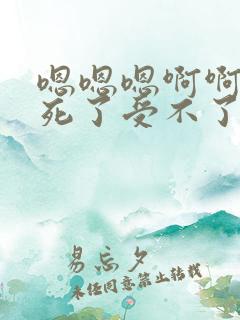 嗯嗯嗯啊啊
死了受不了
易忘夕
未经同意禁止转载